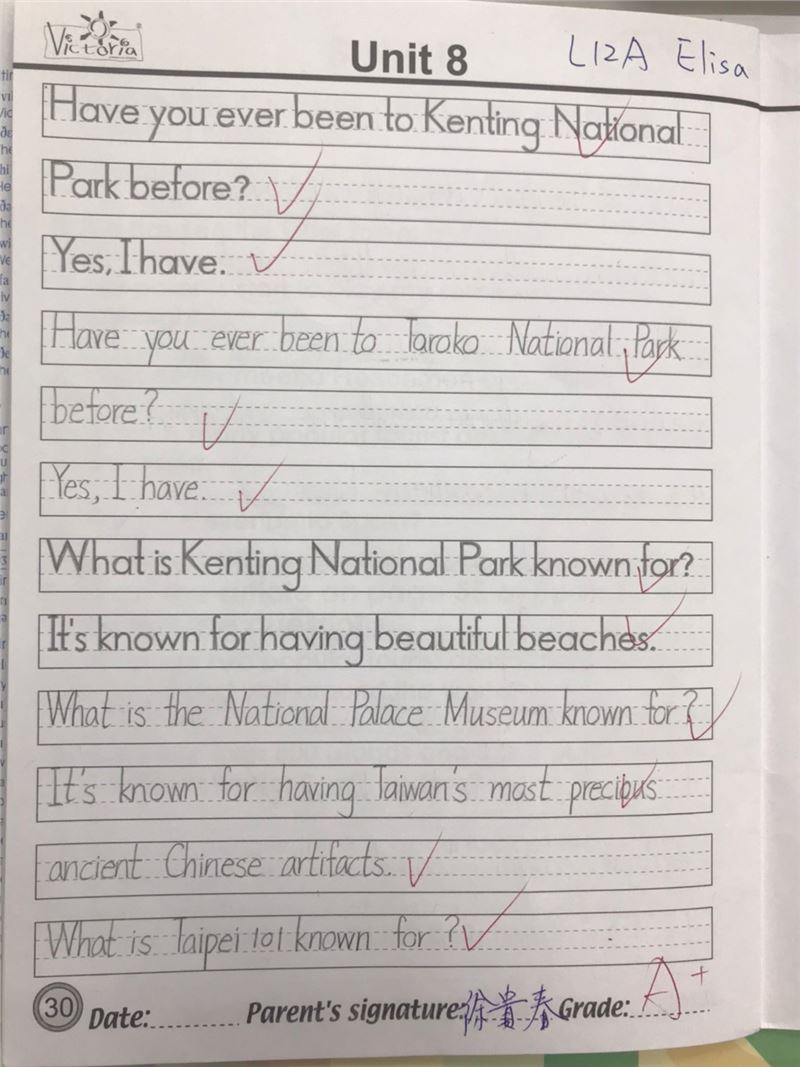 Victoria
Unit 8
L12A Elisa
Have you ever been to Kenting National
Park before?
Yes, I have.
Have you ever been to Taroko National Park
before?
Yes, I have.
What is Kenting National Park known for?
It's known for having beautiful beaches.
What is the National Palace Museum known for?
It's known for having Taiwan's most precious
ancient Chinese artifacts.
What is Taipei 101 known for?
30 Date: Parent's signature: 徐貴春 Grade: A+